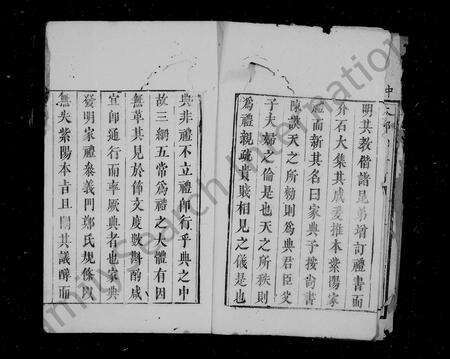 明其教偕諸昆弟增訂禮書而
介石大集其成爰推本紫陽家
禮而新其名曰家典予按尚書
陳謨天之所勑則爲典君臣父
子夫婦之倫是也天之所秩則
爲禮親疏貴賤相見之儀是也
典非禮不立禮即行乎典之中
故三綱五常爲禮之大體有因
無革其見於節文度數斟酌咸
宜即通行而率厥典者也家典
發明家禮參義門鄭氏規條以
無失紫陽本旨且闢其議醇而
FamilySearch International